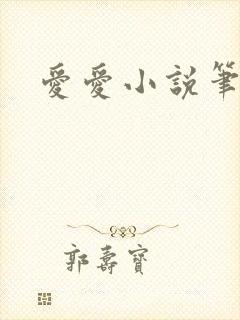 愛愛小說筆
郭壽寶